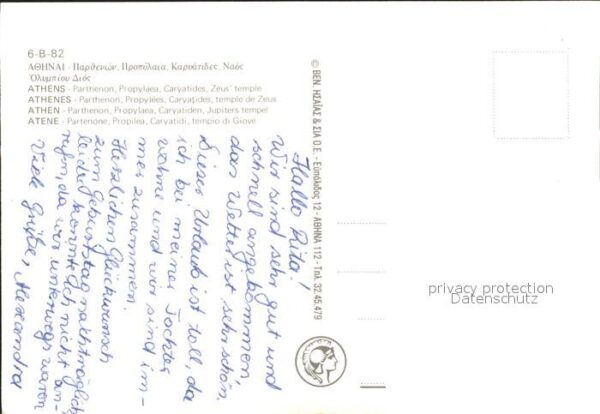 6-B-82
ΑΘΗΝΑΙ - Παρθενών, Προπύλαια, Καρυάτιδες, Ναός
Ὀλυμπίου Διός
ATHENS - Parthenon, Propylaea, Caryatides, Zeus' temple
ATHENES - Parthenon, Propylées, Caryatides, temple de Zeus
ATHEN - Parthenon, Propylaea, Caryatiden, Jupiters tempel
ATENE - Partenone, Propilea, Caryatidi, tempio di Giove
© ΒΕΝ. ΗΣΑΪΑΣ & ΣΙΑ Ο.Ε. - Εὐπάλιδος 12 - ΑΘΗΝΑ 112 - Τηλ. 32.45.479
Hallo Rita!
Wir sind sehr gut und
schnell angekommen,
das Wetter ist sehr schön.
Dieser Urlaub ist toll, da
ich bei meiner Tochter
wohne und wir sind im-
mer zusammen.
Herzlichen Glückwunsch
zum Geburtstag nachträglich
leider konnte ich nicht an-
rufen, da wir unterwegs waren
Viele Grüße, Alexandra
privacy protection
Datenschutz